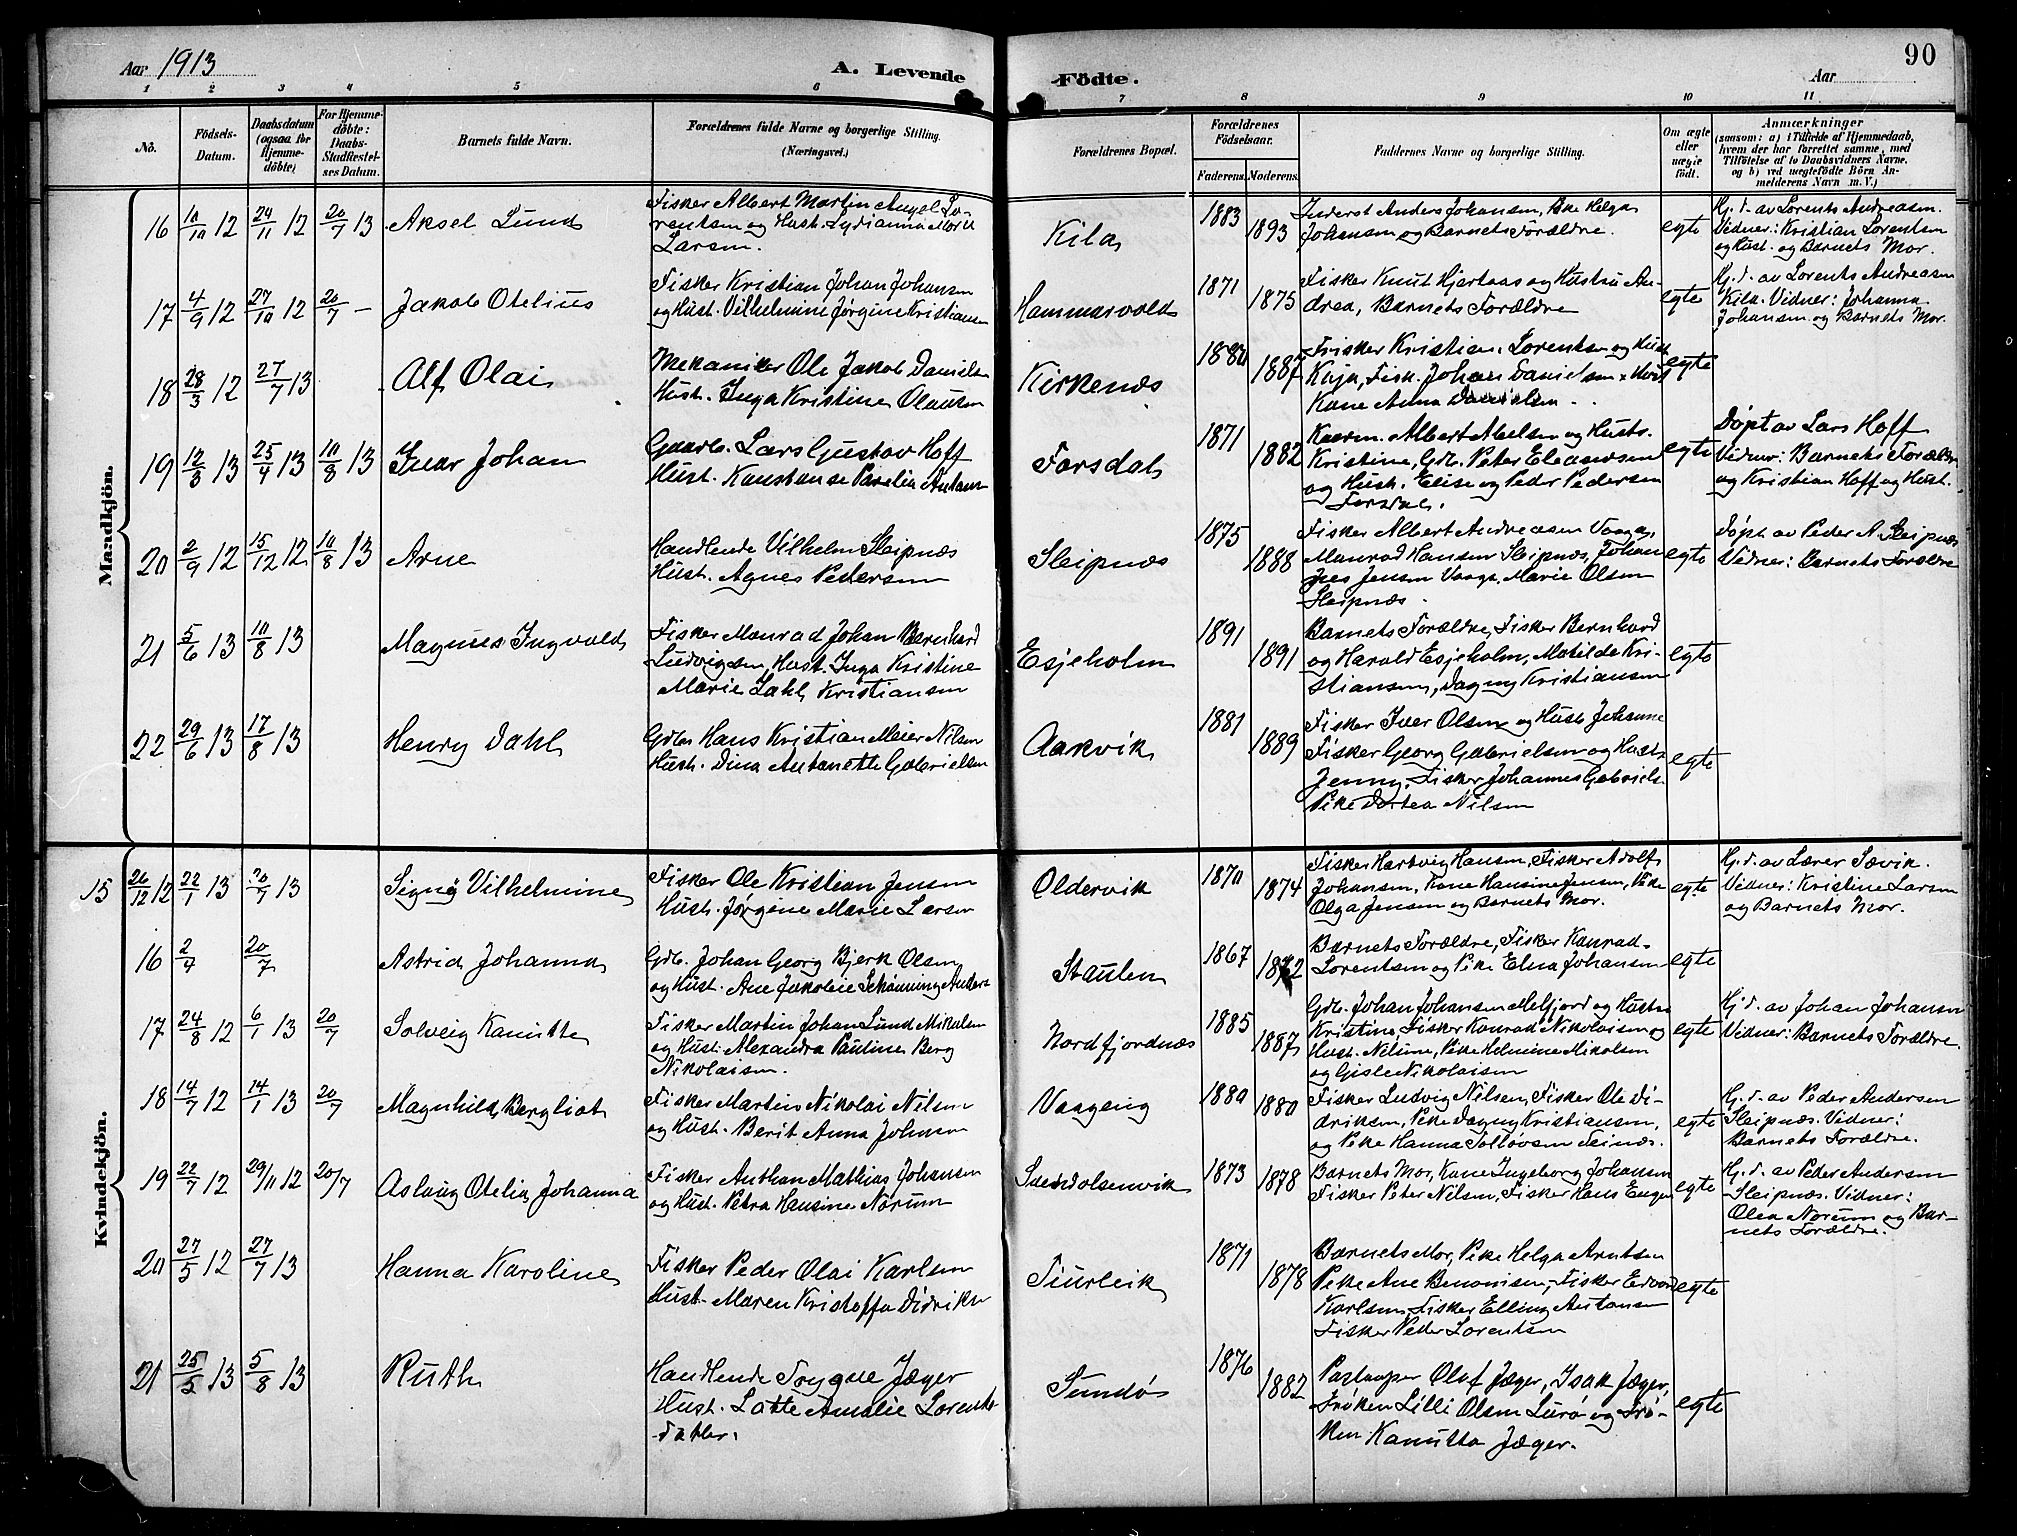 Aar 1913
A. Levende
Födte.
Aar
90
1 2 3 4 5 6 7 8 9 10 11
No.
Födsels-
Datum.
Daabsdatum
(ogsaa for
Hjemme-
döbte)
For Hjemme-
döbte:
Daabs-
Stadfæstel-
ses Datum.
Barnets fulde Navn.
Forældrenes fulde Navne og borgerlige Stilling.
(Næringsvei.)
Forældrenes Bopæl.
Forældrenes
Födselsaar.
Faderens.
Moderens.
Faddernes Navne og borgerlige Stilling.
Om ægte
eller
uægte
födt.
Anmærkninger
(saasom: a) i Tilfælde af Hjemmedaab,
hvem der har forrettet samme, med
Tilföielse af to Daabsvidners Navne.
og b) ved uegtefödte Börn An-
melderens Navn m. V.)
Mandkjön.
16 10/10 12 24/11 12 20/7 13 Aksel Lund
Fisker Albert Martin Angel Lo-
rentsen og Hust. Lydianna
Larsen.
Kila
1883
1893
Inderst Anders Johansen, Pike Helga
Johansen og Barnets Forældre.
egte
Hj. d. av Lorents Andreasen.
Vidner: Kristian Lorentsen
og Hust. og Barnets Mor.
17 4/9 12 27/10 12 20/7 - Jakob Otelius
Fisker Kristian Johan Johansen
og Hust. Vilhelmine Jørgine Kristiansen
Hammarvold
1871
1875
Fisker Knut Hjertaas og Hustru An-
drea, Barnets Forældre
egte
Hj. d. av Lorents Andreasen
Kila. Vidner: Johanna
Johansen og Barnets Mor.
18 28/3 12 27/7 13 Alf Olai
Mekaniker Ole Jakob Danielsen
Hust. Inga Kristine Olausen
Kirkenæs
1880
1887
Fisker Kristian Lorentsen og Hust.
Kaja, Fisk. Johan Danielsen
Kone Anna Danielsen.
egte
19 12/3 13 25/4 13 10/8 13 Ivar Johan
Gaarb. Lars Gustav Hoff
Hust. Konstanse Parelia
Forsdal
1871
1882
Kaarm. Albert Abelsen og Hustr.
Kristine, Gdb. Peter Eleasersen
og Hust. Elise og Peder Pedersen
Forsdal.
egte
Døpt av Lars Hoff
Vidner: Barnets Forældre
og Kristian Hoff og Hust.
20 2/9 12 15/12 12 10/8 13 Arne
Handlende Vilhelm Sleipnæs
Hust. Agnes Pedersen
Sleipnæs
1875
1888
Fisker Albert Andreasen Vaaga,
Manrad Hansen Sleipnæs, Johan
Jensen Vaaga, Marie Olsen
Sleipnæs.
egte
Døpt av Peder A. Sleipnæs
Vidner: Barnets Forældre
21 5/6 13 10/8 13 Magnus Ingvald
Fisker Monrad Johan Bernhard
Ludvigsen, Hust. Inga Kristine
Marie Dahl Kristiansen
Esjeholm
1891
1891
Barnets Forældre, Fisker Bernhard
og Harald Esjeholm, Matilde Kri-
stiansen, Dagny Kristiansen
egte
22 29/6 13 17/8 13 Henry Dahl
Gdbr Hans Kristian Meier Nilsen
Hust. Dina Antonette Gabrielsen
Aakvik
1881
1889
Fisker Iver Olsen og Hust. Johanne
Fisker Georg Gabrielsen og Hustr
Jenny, Fisker Johannes Gabriels.
Pike Dortea Nilsen
egte
Kvindekjön.
15 26/12 12 22/1 13 20/7 13 Signy Vilhelmine
Fisker Ole Kristian Jensen
Hust. Jørgine Marie Larsen
Oldervik
1870
1874
Fisker Hartvig Hansen, Fisker Adolf
Johansen, Kone Hansine Jensen, Pike
Olga Jensen og Barnets Mor.
egte
Hj. d. av Lærer Sævik.
Vidner: Kristine Larsen
og Barnets Mor.
16 2/4 20/7 Astrid Johanna
Gdb. Johan Georg Bjerk Olsen
og Hust. Ane Jakobie Schønning Anders
Staulen
1867
1872
Barnets Forældre, Fisker Konrad
Lorentsen og Pike Elna Johansen
egte
17 24/8 12 6/1 13 20/7 Solveig Kanutte
Fisker Martin Johan Lund Mikalsen
og Hust. Alexandra Pauline Berg
Nikolaisen.
Nordfjordnæs
1885
1887
Gdb. Johan Johansen Melfjord og Hustr
Kristine, Fisker Konrad Nikolaisen og
Hust. Nelsine, Pike Helmine Mikalsen
og Gisle Nikolaisen
egte
Hj. d. av Johan Johansen
Vidner: Barnets Forældre.
18 14/7 12 14/1 13 20/7 Magnhild Bergliot
Fisker Martin Nikolai Nilsen
og Hust. Berit Anna Johnsen
Vaageng
1880
1880
Fisker Ludvig Nilsen, Fisker Ole Di-
driksen, Pike Dagny Kristiansen,
og Pike Hanna Tollovsen
egte
Hj. d. av Peder Andersen
Sleipnæs. Vidner:
Barnets Forældre.
19 22/7 12 29/11 12 20/7 Aslaug Otelia Johanna
Fisker Anthon Mathias Johansen
og Hust. Petra Hansine Norum
Svendolsenvik
1873
1878
Barnets Mor, Kone Ingeborg Johansen
Fisker Peter Nilsen, Fisker Hans Eugen
egte
Hj. d. av Peder Andersen
Sleipnæs. Vidner:
Olea Norum og Bar-
nets Forældre.
20 27/5 12 27/7 13 Hanna Karoline
Fisker Peder Olai Karlsen
Hust. Maren Kristoffa Didriks
Tiurleik
1871
1878
Barnets Mor, Pike Helga Arntsen
Pike Ane Benonisen, Fisker Edvard
Karlsen, Fisker Elling Antonsen
Fisker Peder Lorentsen
egte
21 25/5 13 5/8 13 Ruth
Handlende Trygve Jæger
Hust. Lotte Amalie Lorents-
datter.
Sundø
1876
1882
Olaf Jæger, Isak Jæger,
Frøken Lilli Olsen Lurø og Frø-
ken Kanutta Jæger.
egte